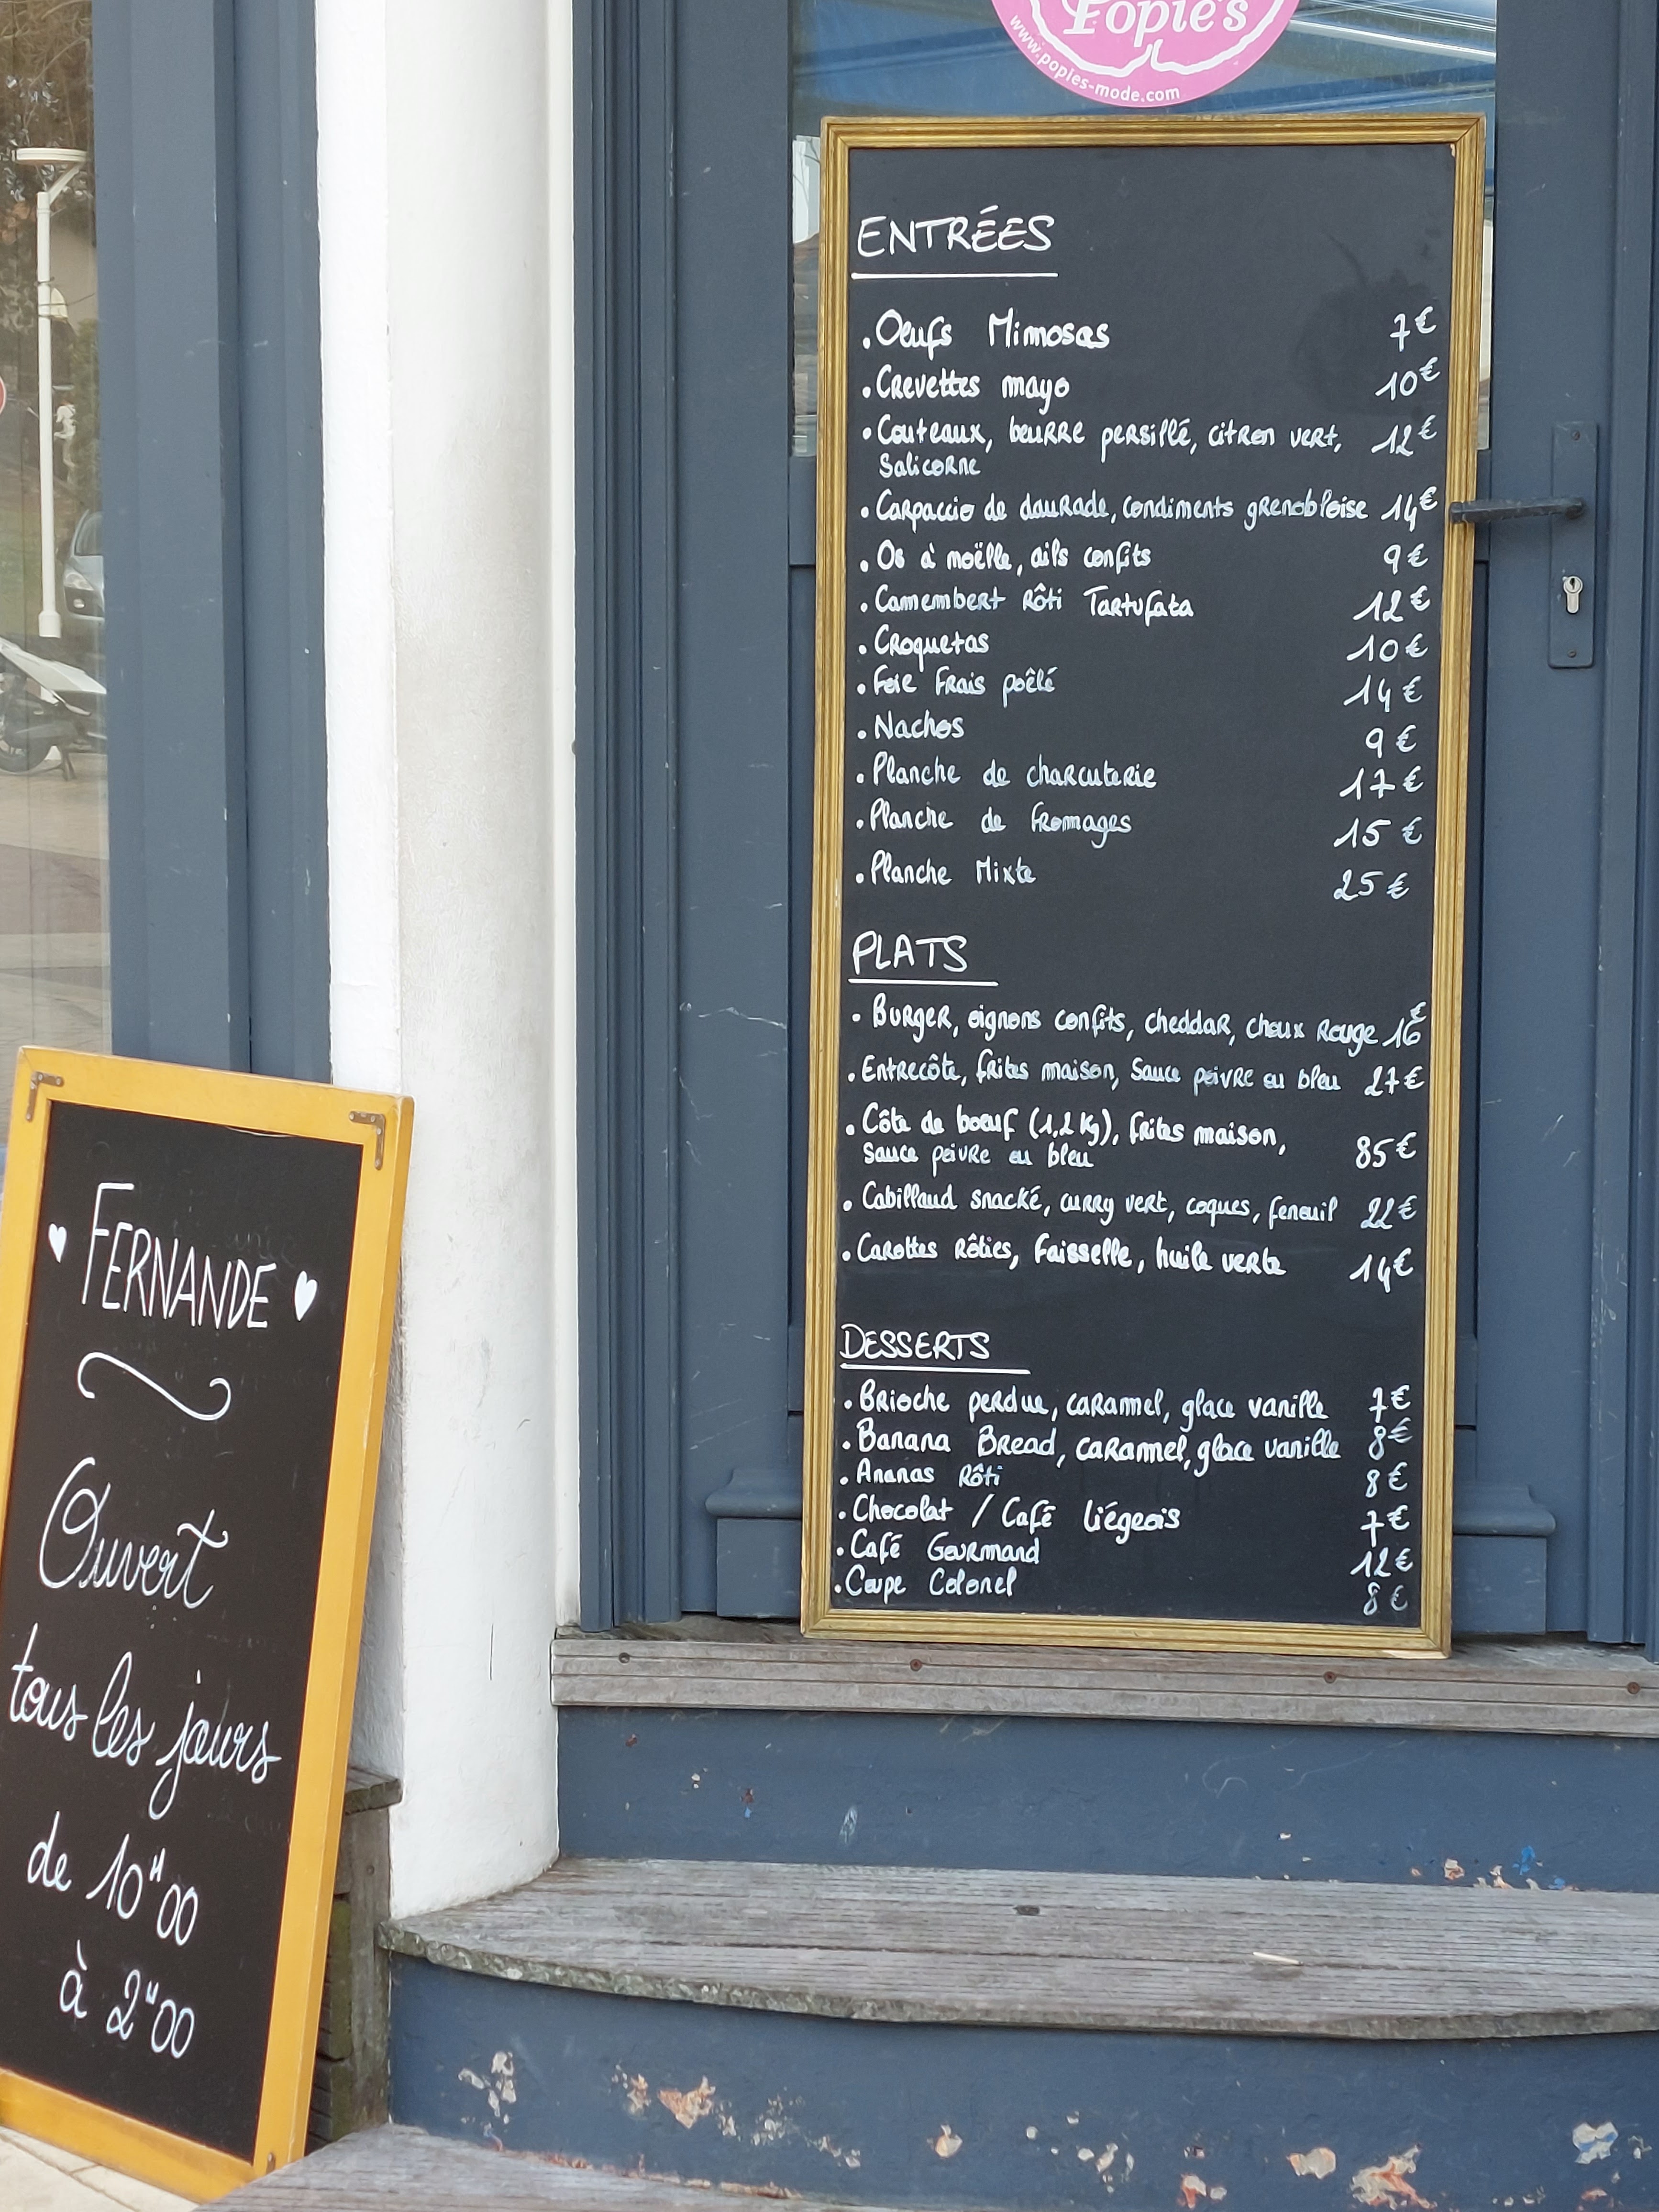 Popie's
www.popies-mode.com
ENTRÉES
. Oeufs Mimosas 7€
. Crevettes mayo 10€
. Couteaux, beurre persillé, citron vert, 12€
Salicorne
. Carpaccio de daurade, condiments grenobloise 14€
. Os à moëlle, ails confits 9€
. Camembert Rôti Tartufata 12€
. Croquetas 10€
. Foie Frais poêlé 14€
. Nachos 9€
. Planche de charcuterie 17€
. Planche de fromages 15€
. Planche Mixte 25€
PLATS
. Burger, oignons confits, cheddar, choux Rouge 16€
. Entrecôte, frites maison, Sauce poivre ou bleu 27€
. Côte de boeuf (1,2 Kg), frites maison, 85€
Sauce poivre ou bleu
. Cabillaud snacké, curry vert, coques, fenouil 22€
. Carottes Rôties, Faisselle, huile verte 14€
DESSERTS
. Brioche perdue, caramel, glace vanille 7€
. Banana Bread, caramel, glace vanille 8€
. Ananas Rôti 8€
. Chocolat / Café Liégeois 7€
. Café Gourmand 12€
. Coupe Colonel 8€
♥ FERNANDE ♥
Ouvert
tous les jours
de 10H00
à 2H00